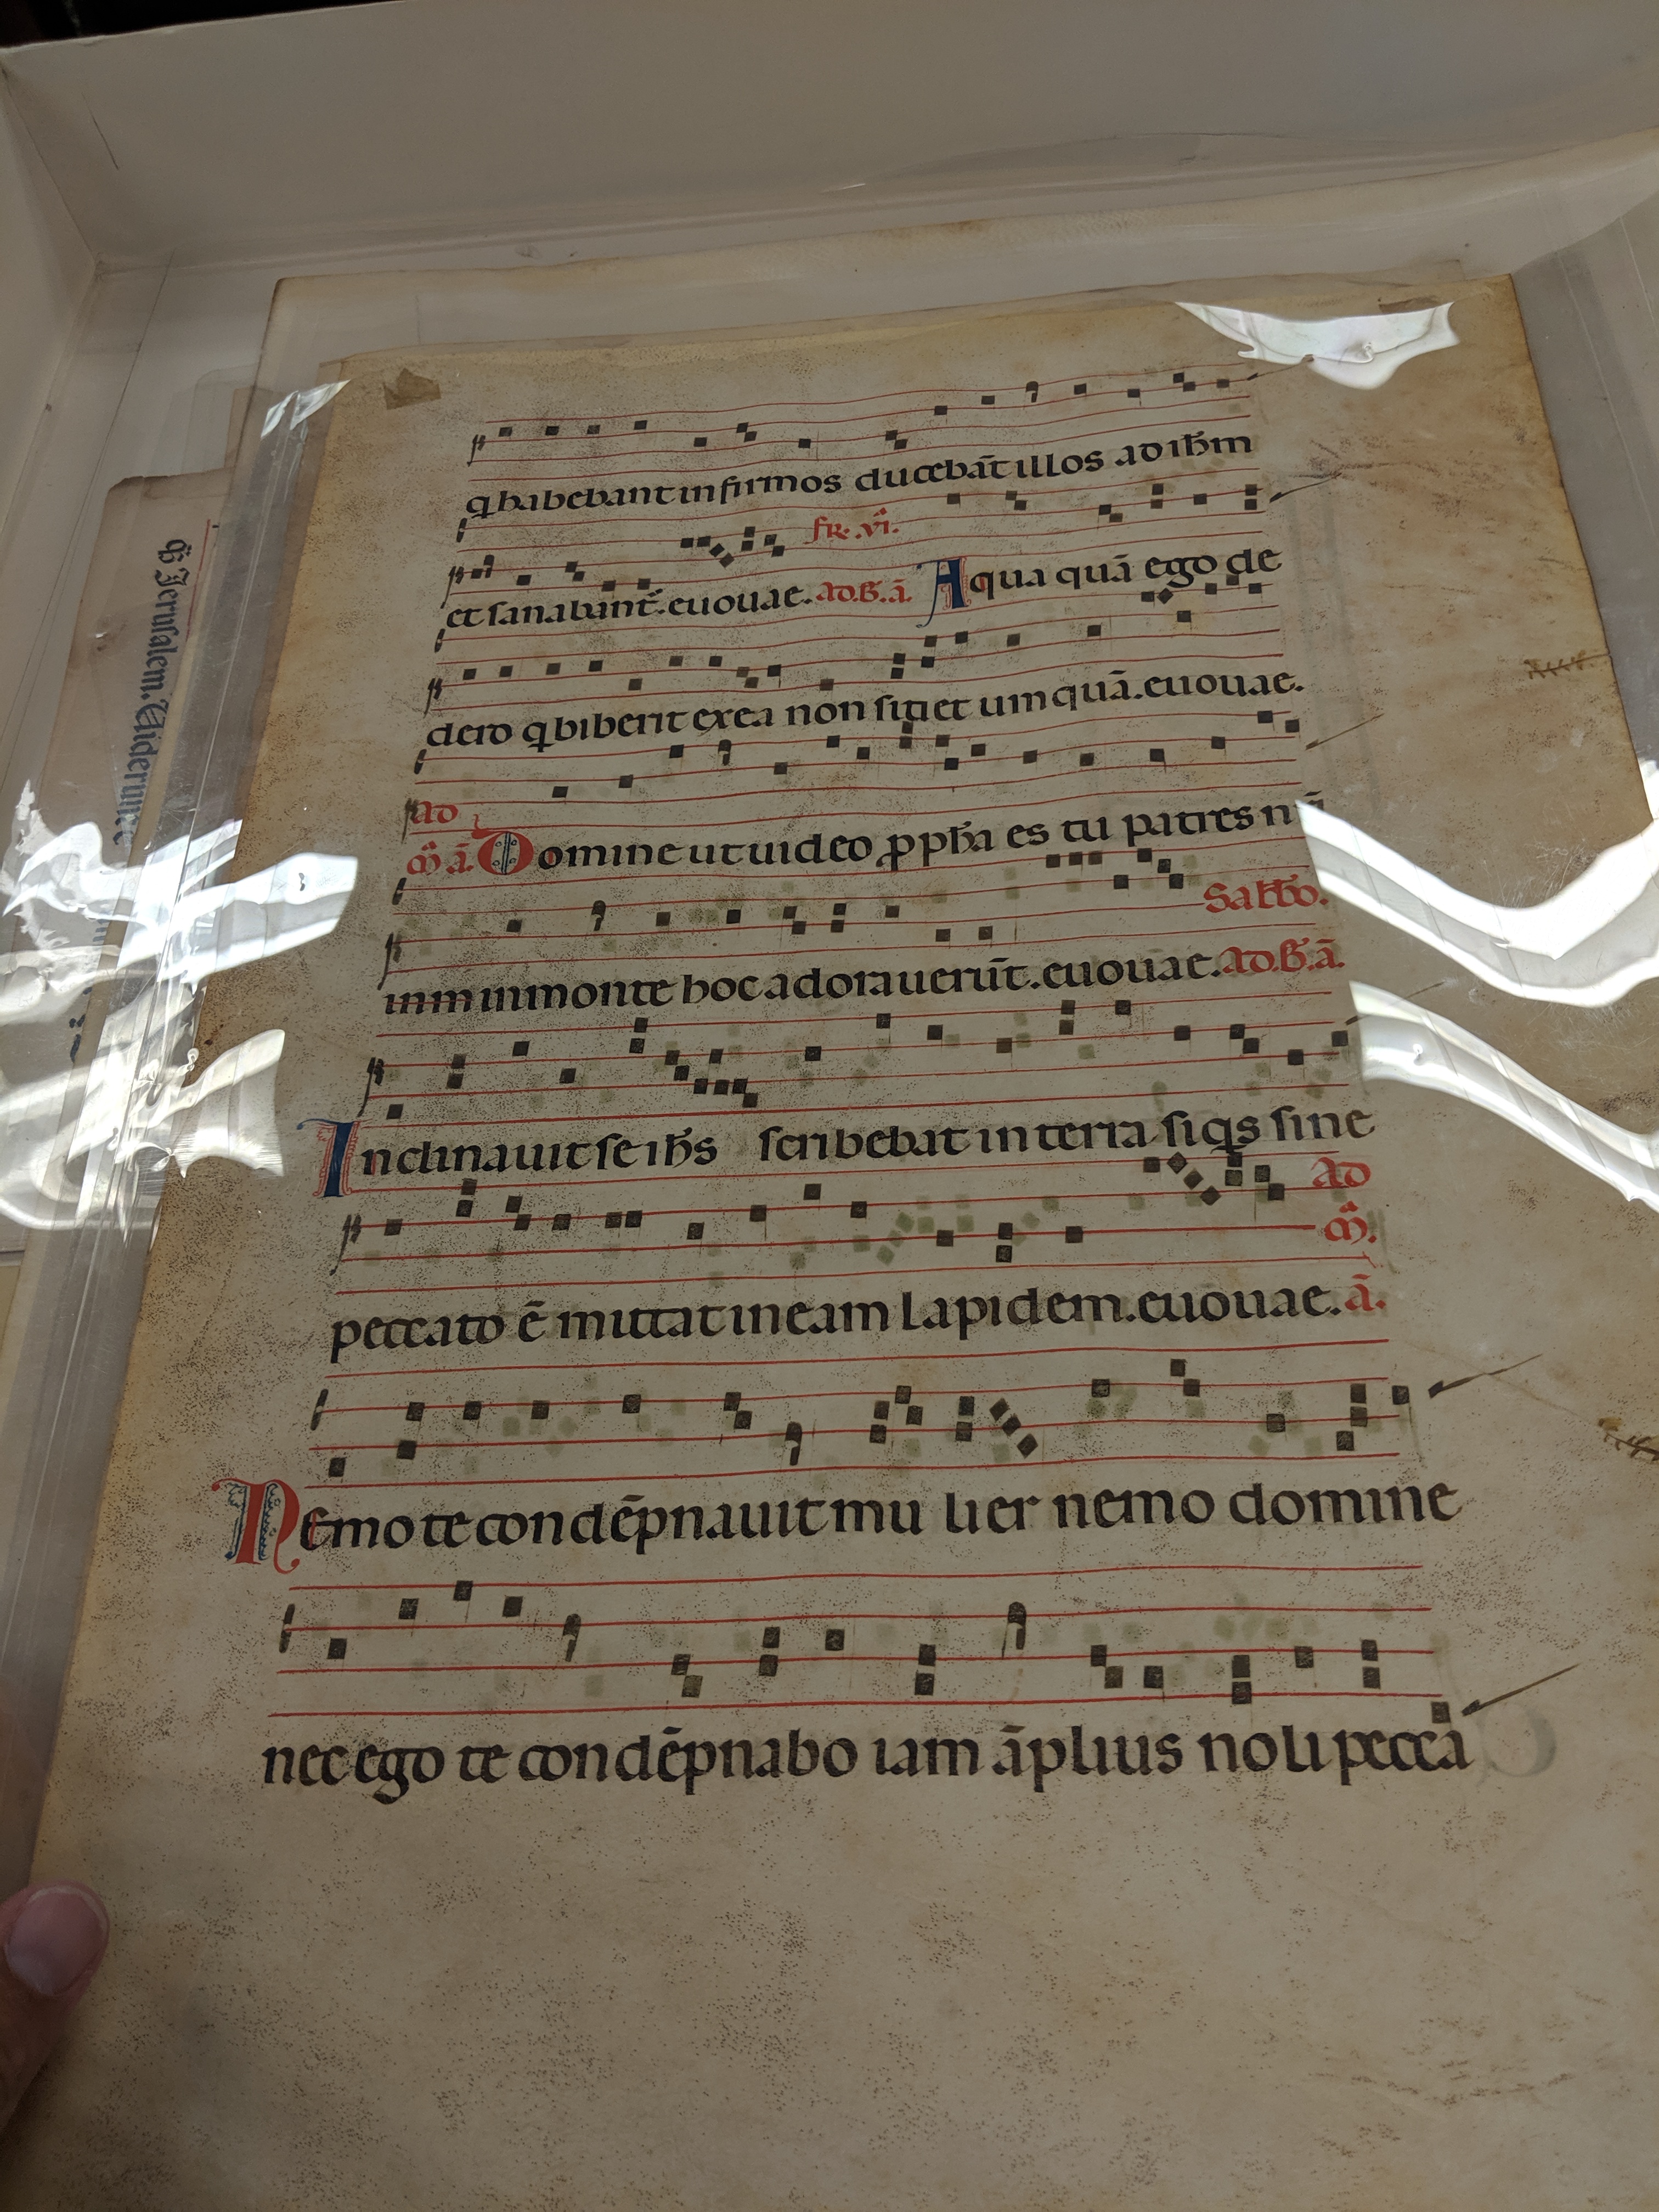 q habebant infirmos ducebāt illos ad ih̄m
fr̄. vi.
et sanabant̄. euouae. ad. B. ā. Aqua quā ego de
dero q biberit ex ea non sitiet umquā. euouae.
ad
m̄. ā. Domine ut uideo ꝓph̄a es tu patres nr̄i
Sabb̄o.
in m in monte hoc adorauerūt. euouae. ad. B. ā.
Inclinauit se ih̄s scribebat in terra si qs sine
ad
m̄.
peccato ē mittat in eam lapidem. euouae. ā.
Nemo te condēpnauit mu lier nemo domine
nec ego te condēpnabo iam āplius noli peccā
Jerusalem. Uiderunt